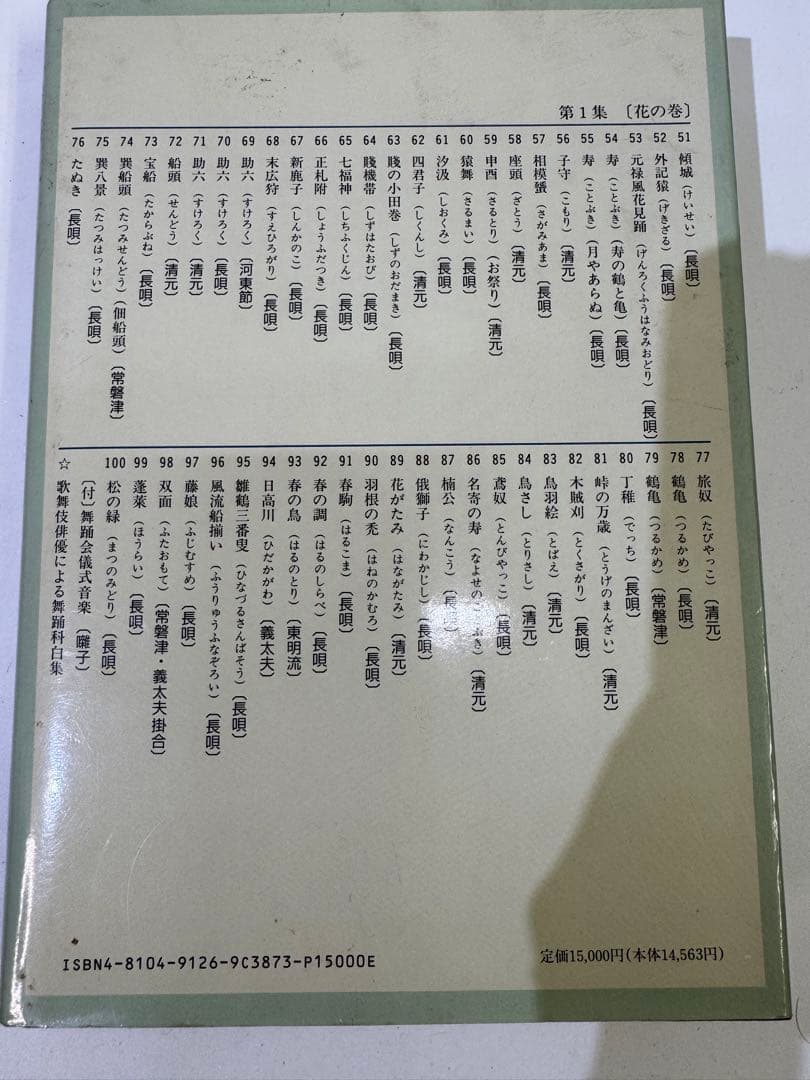 第1集 〔花の巻〕
51 傾城(けいせい)〔長唄〕
52 外記猿(げきざる)〔長唄〕
53 元禄風花見踊(げんろくふうはなみおどり)〔長唄〕
54 寿(ことぶき)(寿の鶴と亀)〔長唄〕
55 寿(ことぶき)(月やあらぬ)〔長唄〕
56 子守(こもり)〔清元〕
57 相模蜑(さがみあま)〔長唄〕
58 座頭(ざとう)〔清元〕
59 申酉(さるとり)(お祭り)〔清元〕
60 猿舞(さるまい)〔長唄〕
61 汐汲(しおくみ)〔長唄〕
62 四君子(しくんし)〔清元〕
63 賤の小田巻(しずのおだまき)〔長唄〕
64 賤機帯(しずはたおび)〔長唄〕
65 七福神(しちふくじん)〔長唄〕
66 正札附(しょうふだつき)〔長唄〕
67 新鹿子(しんかのこ)〔長唄〕
68 末広狩(すえひろがり)〔長唄〕
69 助六(すけろく)〔河東節〕
70 助六(すけろく)〔長唄〕
71 助六(すけろく)〔清元〕
72 船頭(せんどう)〔清元〕
73 宝船(たからぶね)〔長唄〕
74 巽船頭(たつみせんどう)(佃船頭)〔常磐津〕
75 巽八景(たつみはっけい)〔長唄〕
76 たぬき〔長唄〕
77 旅奴(たびやっこ)〔清元〕
78 鶴亀(つるかめ)〔長唄〕
79 鶴亀(つるかめ)〔常磐津〕
80 丁稚(でっち)〔長唄〕
81 峠の万歳(とうげのまんざい)〔清元〕
82 木賊刈(とくさがり)〔長唄〕
83 鳥羽絵(とばえ)〔清元〕
84 鳥さし(とりさし)〔清元〕
85 鳶奴(とんびやっこ)〔長唄〕
86 名寄の寿(なよせのことぶき)〔清元〕
87 楠公(なんこう)〔長唄〕
88 俄獅子(にわかじし)〔長唄〕
89 花がたみ(はながたみ)〔清元〕
90 羽根の禿(はねのかむろ)〔長唄〕
91 春駒(はるこま)〔長唄〕
92 春の調(はるのしらべ)〔長唄〕
93 春の鳥(はるのとり)〔東明流〕
94 日高川(ひだかがわ)〔義太夫〕
95 雛鶴三番叟(ひなづるさんばそう)〔長唄〕
96 風流船揃い(ふうりゅうふなぞろい)〔長唄〕
97 藤娘(ふじむすめ)〔長唄〕
98 双面(ふたおもて)〔常磐津・義太夫掛合〕
99 蓬莱(ほうらい)〔長唄〕
100 松の緑(まつのみどり)〔長唄〕
〔付〕舞踊会儀式音楽〔囃子〕
☆ 歌舞伎俳優による舞踊科白集
ISBN4-8104-9126-9C3873-P15000E
定価15,000円(本体14,563円)